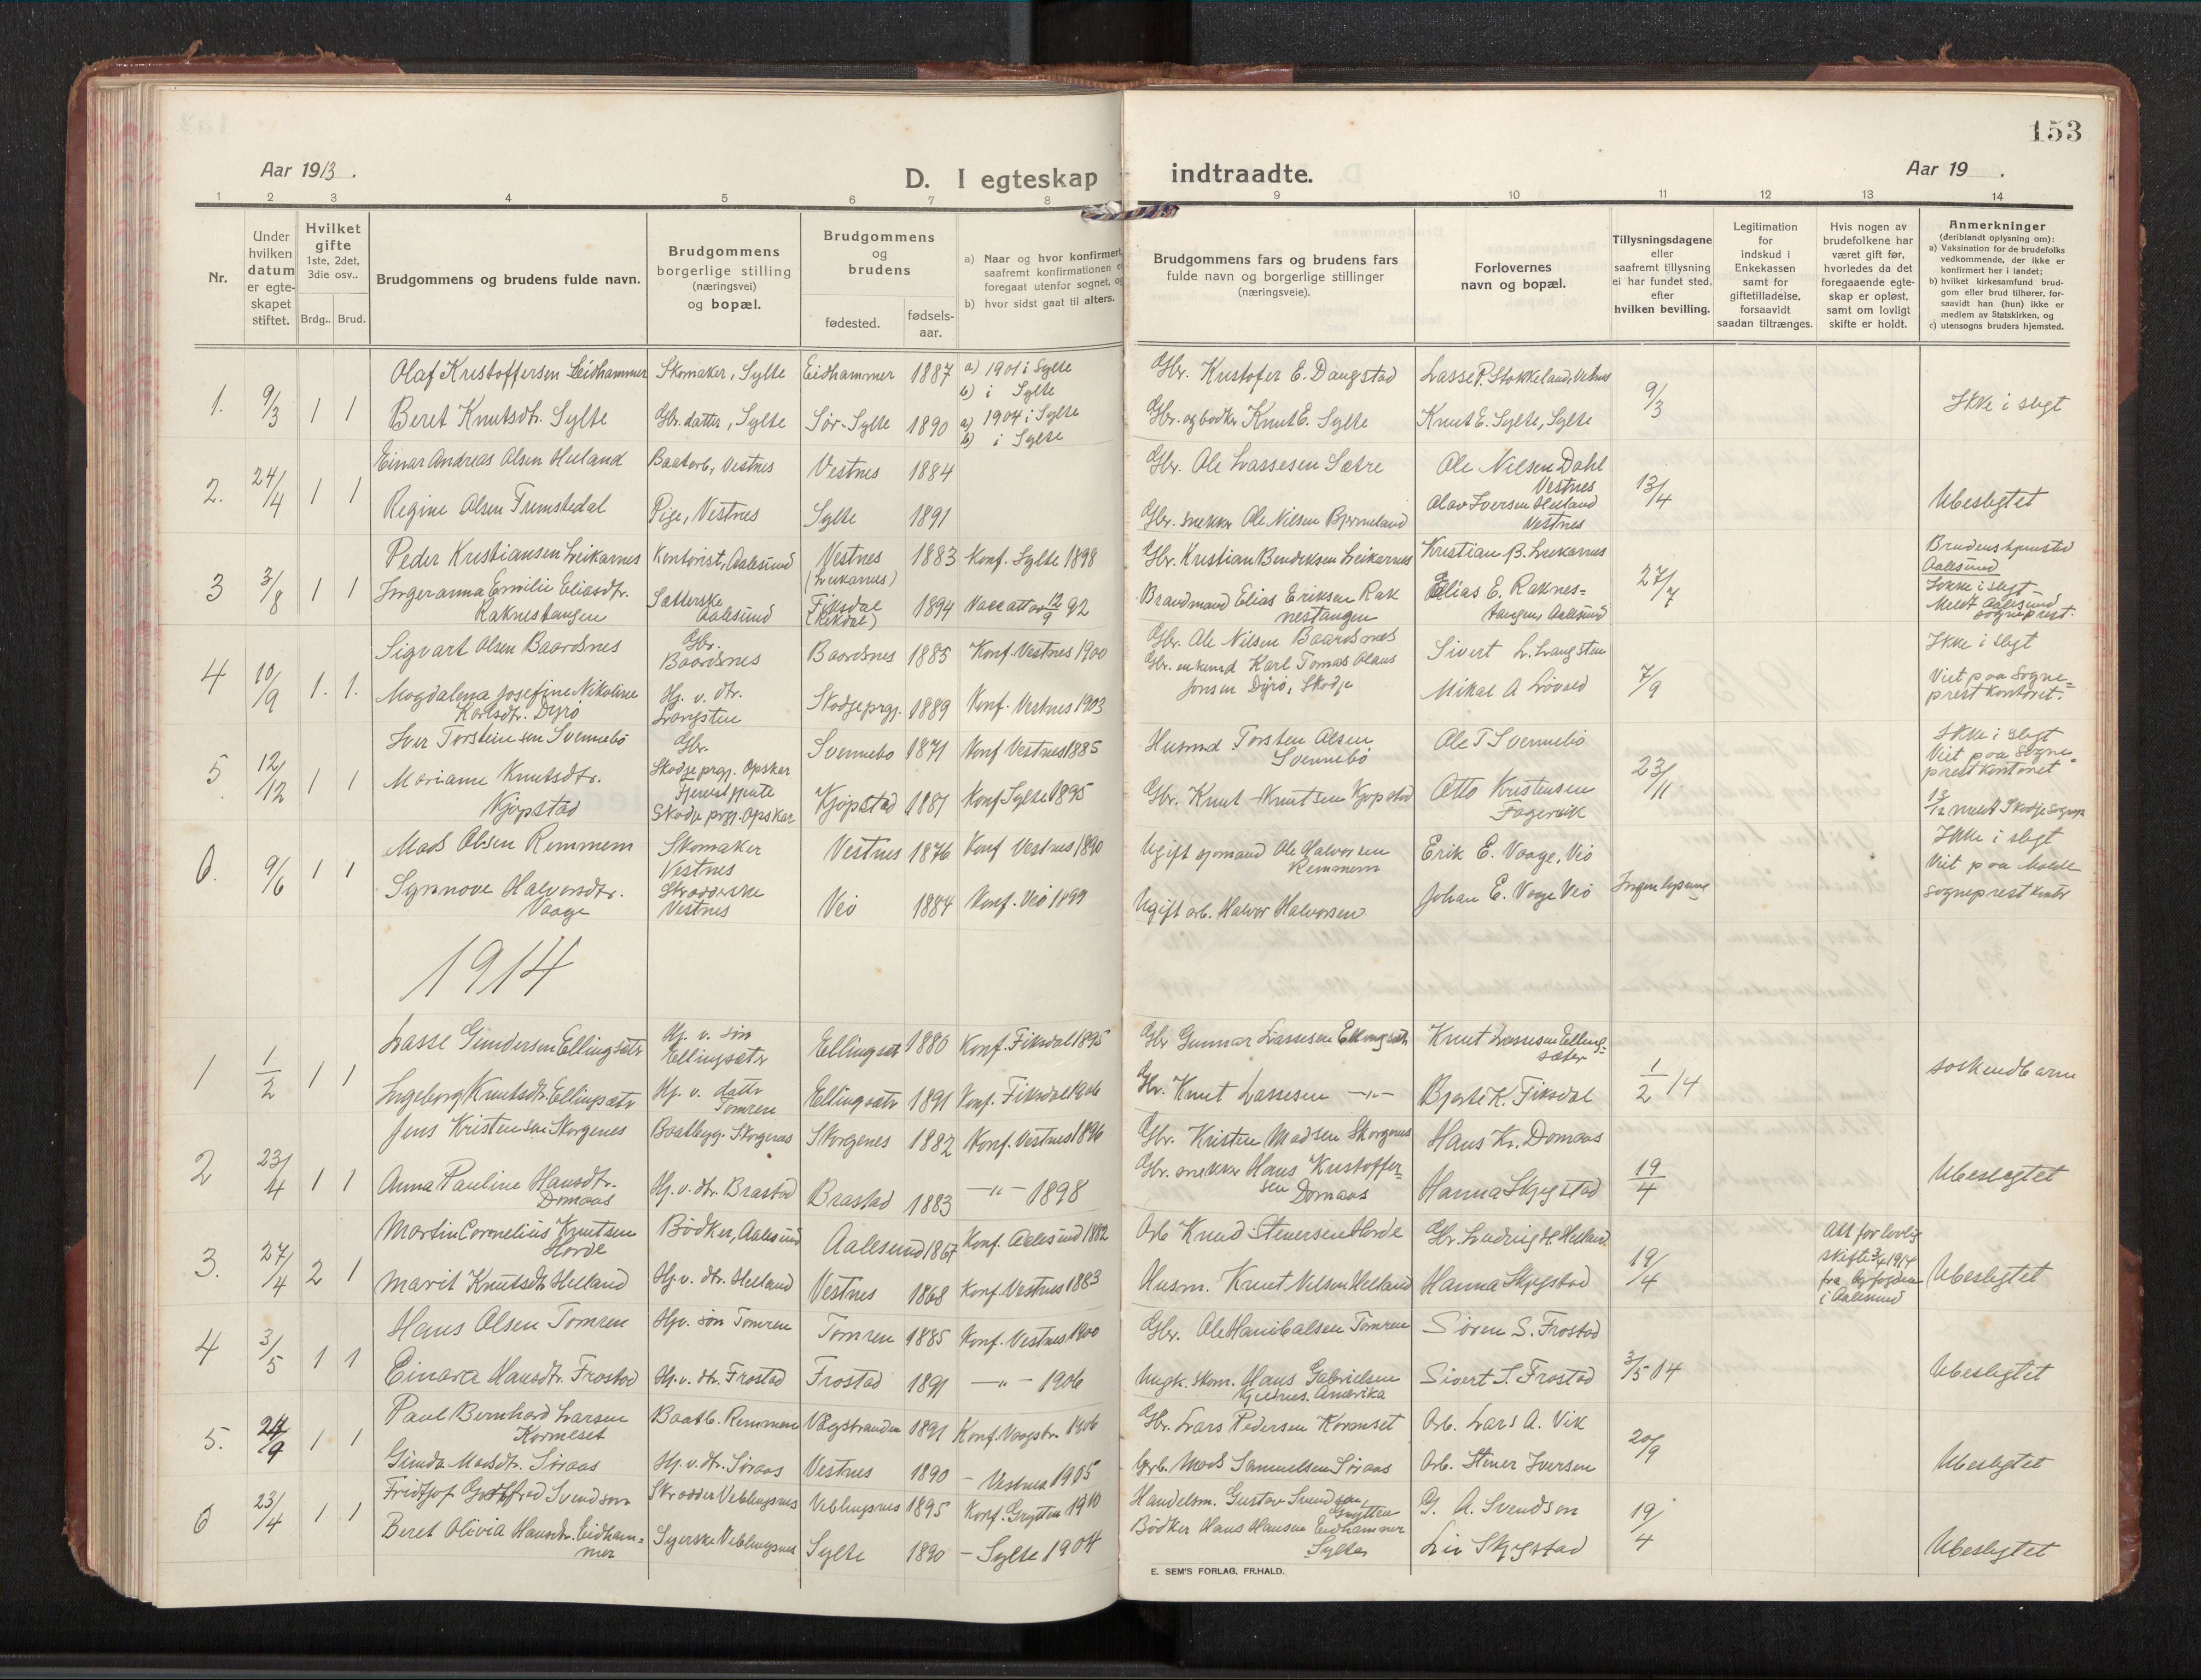 153
Aar 1913.
D. I egteskap indtraadte.
Aar 19 .
1 2 3 4 5 6 7 8 9 10 11 12 13 14
Nr.
Under hvilken datum er egte-skapet stiftet.
Hvilket gifte 1ste, 2det, 3die osv..
Brdg.. Brud.
Brudgommens og brudens fulde navn.
Brudgommens borgerlige stilling (næringsvei) og bopæl.
Brudgommens og brudens
fødested.
fødsels-aar.
a) Naar og hvor konfirmert, saafremt konfirmationen foregaat utenfor sognet, og
b) hvor sidst gaat til alters.
Brudgommens fars og brudens fars fulde navn og borgerlige stillinger (næringsveie).
Forlovernes navn og bopæl.
Tillysningsdagene eller saafremt tillysning ei har fundet sted, efter hvilken bevilling.
Legitimation for indskud i Enkekassen samt for giftetilladelse, forsaavidt saadan tiltrænges.
Hvis nogen av brudefolkene har været gift før, hvorledes da det foregaaende egte-skap er opløst, samt om lovligt skifte er holdt.
Anmerkninger
(deriblandt oplysning om):
a) Vaksination for de brudefolks vedkommende, der ikke er konfirmert her i landet;
b) hvilket kirkesamfund brud-gom eller brud tilhører, for-saavidt han (hun) ikke er medlem av Statskirken, og
c) utensogns bruders hjemsted.
1. 9/3 1 1
Olaf Kristoffersen Eidhammer Skomaker, Sylte Eidhammer 1887 a) 1901 i Sylte b) i Sylte
Gbr. Kristofer E. Daugstad Lasse P. Stokkeland, Vestnes 9/3
Beret Knutsdtr. Sylte Gbr. datter, Sylte Sør-Sylte 1890 a) 1904 i Sylte b) i Sylte
Gbr. og bødker Knut E. Sylte Knut E. Sylte, Sylte Ikke i slegt
2. 24/4 1 1
Einar Andreas Olsen Heiland Baatarb, Vestnes Vestnes 1884
Gbr. Ole Lassesen Sætre Ole Nilsen Dahl Vestnes 13/4
Regine Olsen Tremstedal Pige, Vestnes Sylte 1891
Gbr. snekker Ole Nilsen Bjermeland Olav Iversen Heiland Vestnes Ubeslegtet
3 3/8 1 1
Peder Kristiansen Leikarnes Kontorist, Aalesund Vestnes (Leikarnes) 1883 Konf. Sylte 1898
Gbr. Kristian Bendiksen Leikarnes Kristian B. Leikarnes 27/7
Ingeranna Emilie Eliasdtr. Raknestangen Sætterske Aalesund Fiksdal (Rekdal) 1894 Vacc att av 12/9 92
Brandmand Elias Eriksen Raknestangen Elias E. Raknes=tangen, Aalesund
Brudens hjemsted Aalesund Ikke i slegt - Meldt Aalesund sogneprest.
4 10/9 1. 1.
Sigvart Olsen Baardsnes Gbr. Baardsnes Baardsnes 1885 Konf. Vestnes 1900
Gbr. Ole Nilsen Baardsnes Sivert L. Langsten 7/9
Magdalena Josefine Nikoline Karlsdtr. Dyrø Hj. v. dtr. Langsten Skodje prgj. 1889 Konf. Vestnes 1903
Gbr. enkemd Karl Tomas Olaus Jonsen Dyrø, Skodje Mikal A Løvold
Ikke i slegt Viet paa Sogne=prestkontoret.
5 12/12 1 1
Iver Torsteinsen Svennebø Gbr. Skodje prgj. Opskar Svennebø 1871 Konf Vestnes 1885
Husmd Torsten Olsen Svennebø Ole T Svennebø 23/11
Mariane Knutsdtr. Kjøpstad Tjenestpjente Skodje prgj. Opskar Kjøpstad 1881 Konf Sylte 1895
Gbr. Knut Knutsen Kjøpstad Otto Kristensen Fagervik
Ikke i slegt Viet paa Sogne=prestkontoret 13/12 meldt Skodje sognepr
6. 9/6 1 1
Mads Olsen Remmem Skomaker Vestnes Vestnes 1876 Konf Vestnes 1890
Ugift sjømand Ole Halvorsen Remmem Erik E. Vaage, Veø
Synnove Halvorsdtr. Vaage Skrædderske Vestnes Veø 1884 Konf. Veø 1899
Ugift arb. Halvor Halvorsen Johan E. Vaage Veø Ingen lysning
Ikke i slegt Viet paa Molde sogneprestkontor
1914
1 1/2 1 1
Lasse Gundersen Ellingsætr Hj. v. søn Ellingsætr Ellingsæt 1880 Konf. Fiksdal 1895
Gbr Gunnar Lassesen Ellingsætr Knut Lassesen Elling=sæter 1/2 14
Ingeborg Knutsdtr. Ellingsætr Hj. v. dattr Tomren Ellingsætr 1891 Konf. Fiksdal 1906
Gbr. Knut Lassesen —"— Bjarte K. Fiksdal søskendbarn
2 23/4 1 1
Jens Kristensen Skorgenes Baatbygg. Skorgenes Skorgenes 1882 Konf. Vestnes 1896
Gbr. Kristen Madsen Skorgenes Hans Kr. Domaas 19/4
Anna Pauline Hansdtr. Domaas Hj. v. dtr. Brastad Brastad 1883 —"— 1898
Gbr. snekker Hans Kristoffersen Domaas Hanna Skjegstad Ubeslegtet
3. 27/4 2 1
Martin Cornelius Knutsen Horde Bødker, Aalesund Aalesund 1867 Konf. Aalesund 1882
Arb Knud Steversen Horde Gbr. Ludvig H. Helland 19/4
Marit Knutsdtr Helland Hj. v. dtr. Helland Vestnes 1868 Konf. Vestnes 1883
Husm. Knut Nilsen Helland Hanna Skjegstad
Att for lovlig skifte 3/4 1914 fra byfogden i Aalesund Ubeslegtet
4 3/5 1 1
Hans Olsen Tomren Hjv. søn Tomren Tomren 1885 Konf. Vestnes 1900
Gbr. Ole Hanibalsen Tomren Søren S. Frostad 3/5 14
Einara Hansdtr. Frostad Hj. v. dtr. Frostad Frostad 1891 —"— 1906
Ungk. skom. Hans Gabrielsen Kjelnes. Amerika Sivert S. Frostad Ubeslegtet
5. 24/9 1 1
Paul Bernhard Larsen Kormeset Baatb. Remmem Vaagstranden 1891 Konf. Vaagstr. 1906
Gbr. Lars Pedersen Kormset Arb. Lars A. Vik 20/9
Gunda Madsdtr. Søraas Hj. v. dtr. Søraas Vestnes 1890 — Vestnes 1905
Gbr. Mads Samuelsen Søraas Arb. Stener Iversen Ubeslegtet
6 23/4 1 1
Fridtjof Gottfred Svendson Skrædder Veblungsnes Veblungsnes 1895 Konf. Grytten 1910
Handelsm. Gustav Svendsen, Grytten G. A. Svendson 19/4
Beret Olivia Hansdtr. Eidham=mer Syerske Veblungsnes Sylte 1890 — Sylte 1904
Bødker Hans Hansen Eidhammer Sylte Liv Skjegstad Ubeslegtet
E. SEM'S FORLAG, FR.HALD.